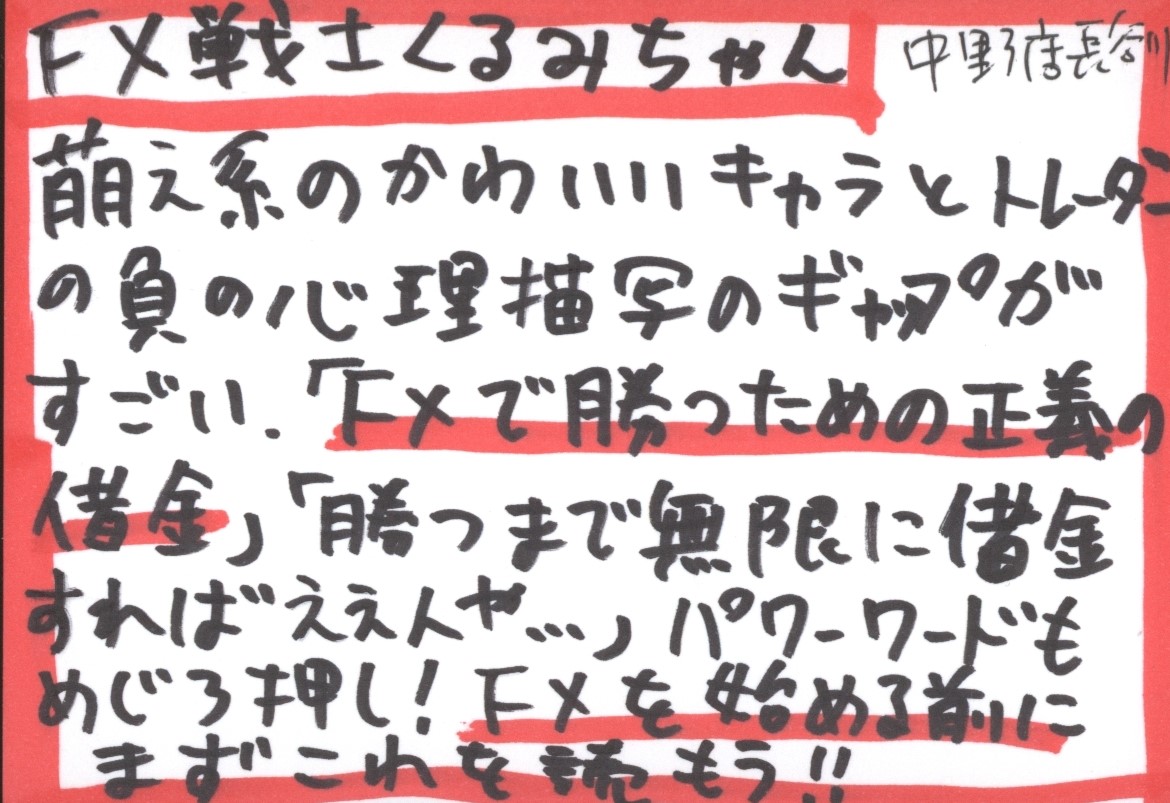 FX戦士くるみちゃん
中野店長谷川
萌え系のかわいいキャラとトレーダー
の負の心理描写のギャップが
すごい.「FXで勝つための正義の
借金」「勝つまで無限に借金
すればええんや…」パワーワードも
めじろ押し!FXを始める前に
まずこれを読もう!!